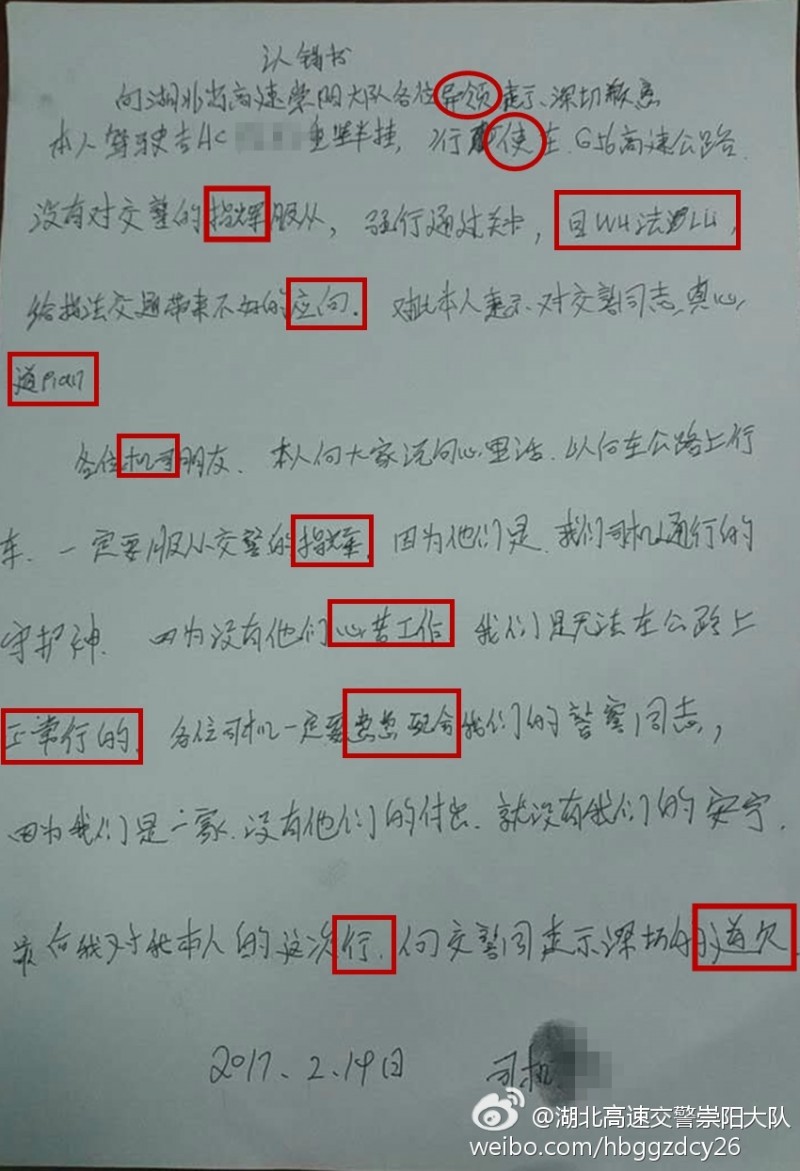 认错书
向湖北省高速崇阳大队各位导领表示、深切歉意
本人驾驶吉AC 重型半挂, 行使在. G56高速公路.
没有对交警的指辉服从, 强行通过关卡, 且WU法LU,
给执法交通带来不好的应向. 对此本人表示.对交警同志.真心
道Pian
各位机司朋友. 本人向大家说句心里话. 以后在公路上行
车. 一定要服从交警的指辉, 因为他们是.我们司机通行的
守护神. 因为没有他们心苦工作, 我们是无法在公路上
正常行的, 各位司机一定要 配合我们的警察同志,
因为我们是一家.没有他们的付出.就没有我们的安宁.
最后我对于本人的这次行, 向交警同表示深切的道欠.
2017. 2.14日 司机
@湖北高速交警崇阳大队
weibo.com/hbggzdcy26